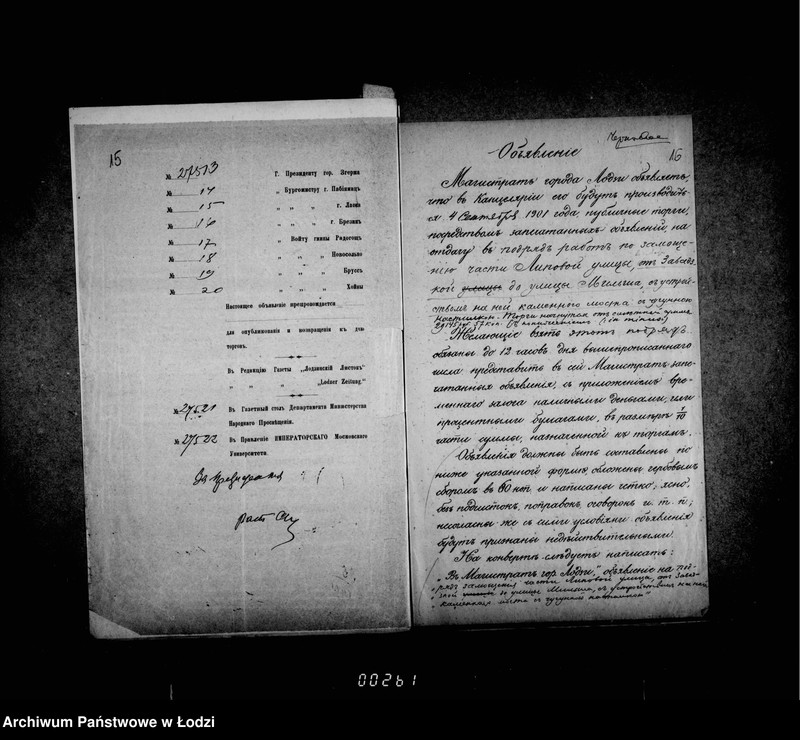 15
№ 27513 Г. Президенту гор. Згержа
№ 14 „ Бургомистру г. Пабіяницъ
№ 15 „ „ „ г. Ласка
№ 16 „ „ „ г. Брезинъ
№ 17 „ Войту гмины Радогощъ
№ 18 „ „ „ Новосольно
№ 19 „ „ „ Брусъ
№ 20 „ „ „ Хойны
Настоящее объявленіе препровождается
для опубликованія и возвращенія къ дню
торговъ.
Въ Редакцію Газеты „Лодзинскій Листокъ“
„ „ „ „Lodzer Zeitung.“
№ 27521 Въ Газетный столъ Департамента Министерства
Народнаго Просвѣщенія.
№ 27522 Въ Правленіе ИМПЕРАТОРСКАГО Московскаго
Университета.
За Президента
16
Объявленіе
Магистратъ города Лодзи объявляетъ,
что въ Канцеляріи его будутъ производить-
ся 4 Сентября 1901 года, публичные торги,
посредствомъ запечатанныхъ объявленій, на
отдачу въ подрядъ работъ по замоще-
нію части Липовой улицы, отъ Завад-
ской улицы до улицы Мильша, съ устрой-
ствомъ на ней каменнаго моста, съ чугунною
настилкою. Торги начнутся отъ смѣтной суммы
29145 р. 57 коп. (in minus)
Желающіе взять этотъ подрядъ
обязаны до 12 часовъ дня вышепрописаннаго
числа представить въ сей Магистратъ запе-
чатанныя объявленія, съ приложеніемъ вре-
меннаго залога наличными деньгами, или
процентными бумагами, въ размѣрѣ 1/10
части суммы, назначенной къ торгамъ.
Объявленія должны быть составлены по
ниже указанной формѣ, обложены гербовымъ
сборомъ въ 60 коп. и написаны четко, ясно,
безъ подчистокъ, поправокъ, оговорокъ и. т. п.;
несогласныя же съ сими условіями объявленія
будутъ признаны недѣйствительными.
На конвертѣ слѣдуетъ написать:
„Въ Магистратъ гор. Лодзи,“ „объявленіе на под-
„рядъ замощенія части Липовой улицы, отъ Завад-
„ской улицы до улицы Мильша, съ устройствомъ на ней
„каменнаго моста съ чугунною настилкою“
00261
Archiwum Państwowe w Łodzi